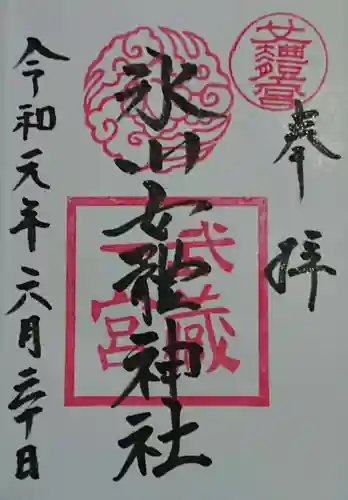 奉拝
女體宮
氷川女體神社
武蔵一宮
令和元年六月三十日